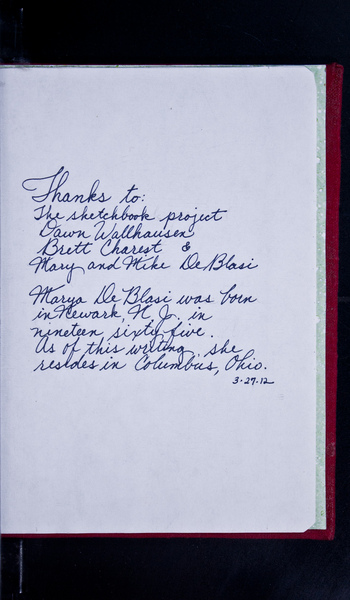 Thanks to:
The sketchbook project
Dawn Wallhausen
Brett Charest &
Mary and Mike DeBlasi
Marya DeBlasi was born
in Newark, N.J. in
nineteen sixty five.
As of this writing, she
resides in Columbus, Ohio.
3-27-12